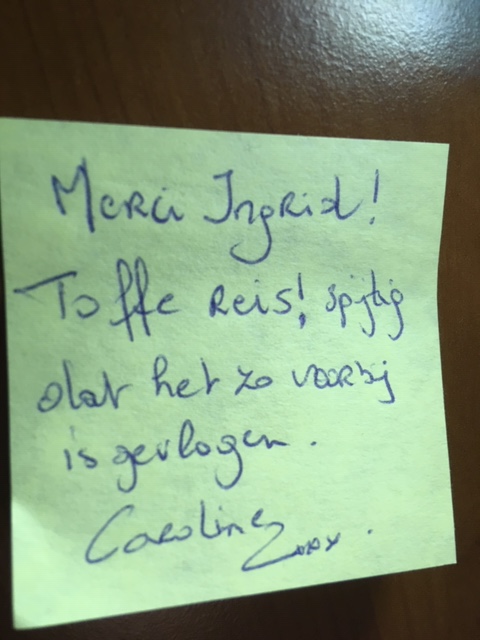 Merci Ingrid!
Toffe reis! spijtig
dat het zo voorbij
is gevlogen.
Caroline xxx.